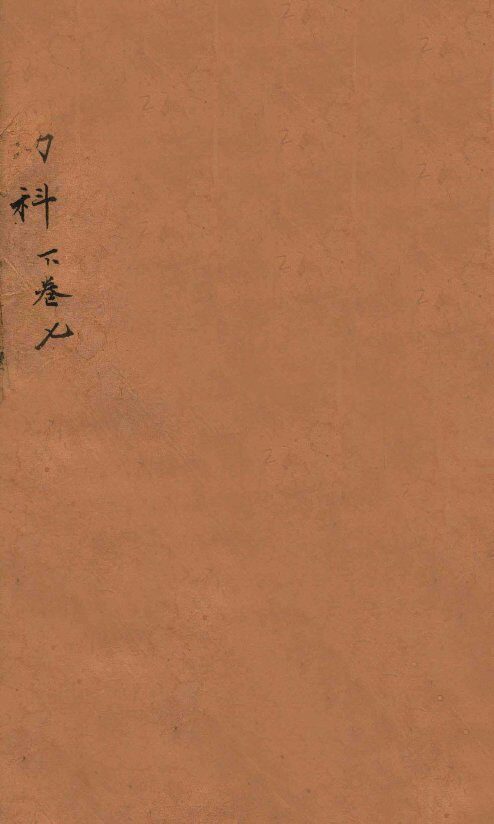 幼科
下卷九